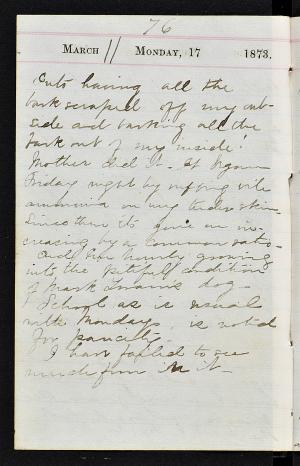 76
MARCH 11 MONDAY, 17 1873.
Cuts having all the
bark scraped off my out-
side and barking all the
bark out of my inside!
Mother did it. It began
Friday night by rubbing vile
ammonia on my tender skin
Since then its gone on in-
creasing by a common ratio
And I'm hourly growing
into the pitiful condition
of Mark Twains dog—
School as is usual
with Mondays, is noted
for
I have failed to see
much fun in it—